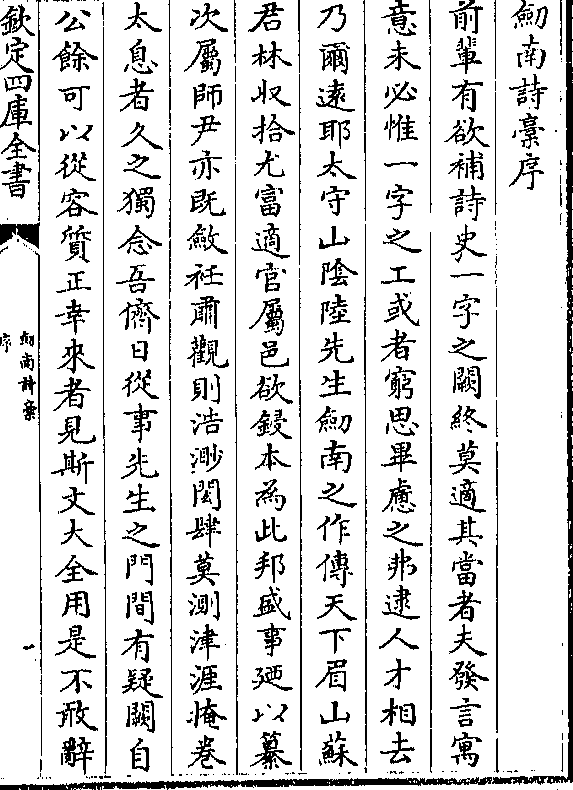 劒南詩稾序
前輩有欲補詩史一字之闕終莫適其當者夫發言寓
意未必惟一字之工或者窮思畢慮之弗逮人才相去
乃爾遠耶太守山陰陸先生劒南之作傳天下眉山蘇
君林收拾尤富適官屬邑欲鋟本為此邦盛事廼以纂
次屬師尹亦既斂衽肅觀則浩渺閎肆莫測津涯掩卷
太息者久之獨念吾儕日從事先生之門間有疑闕自
公餘可以從容質正幸來者見斯文大全用是不敢辭
欽定四庫全書
劒南詩稾
序
一